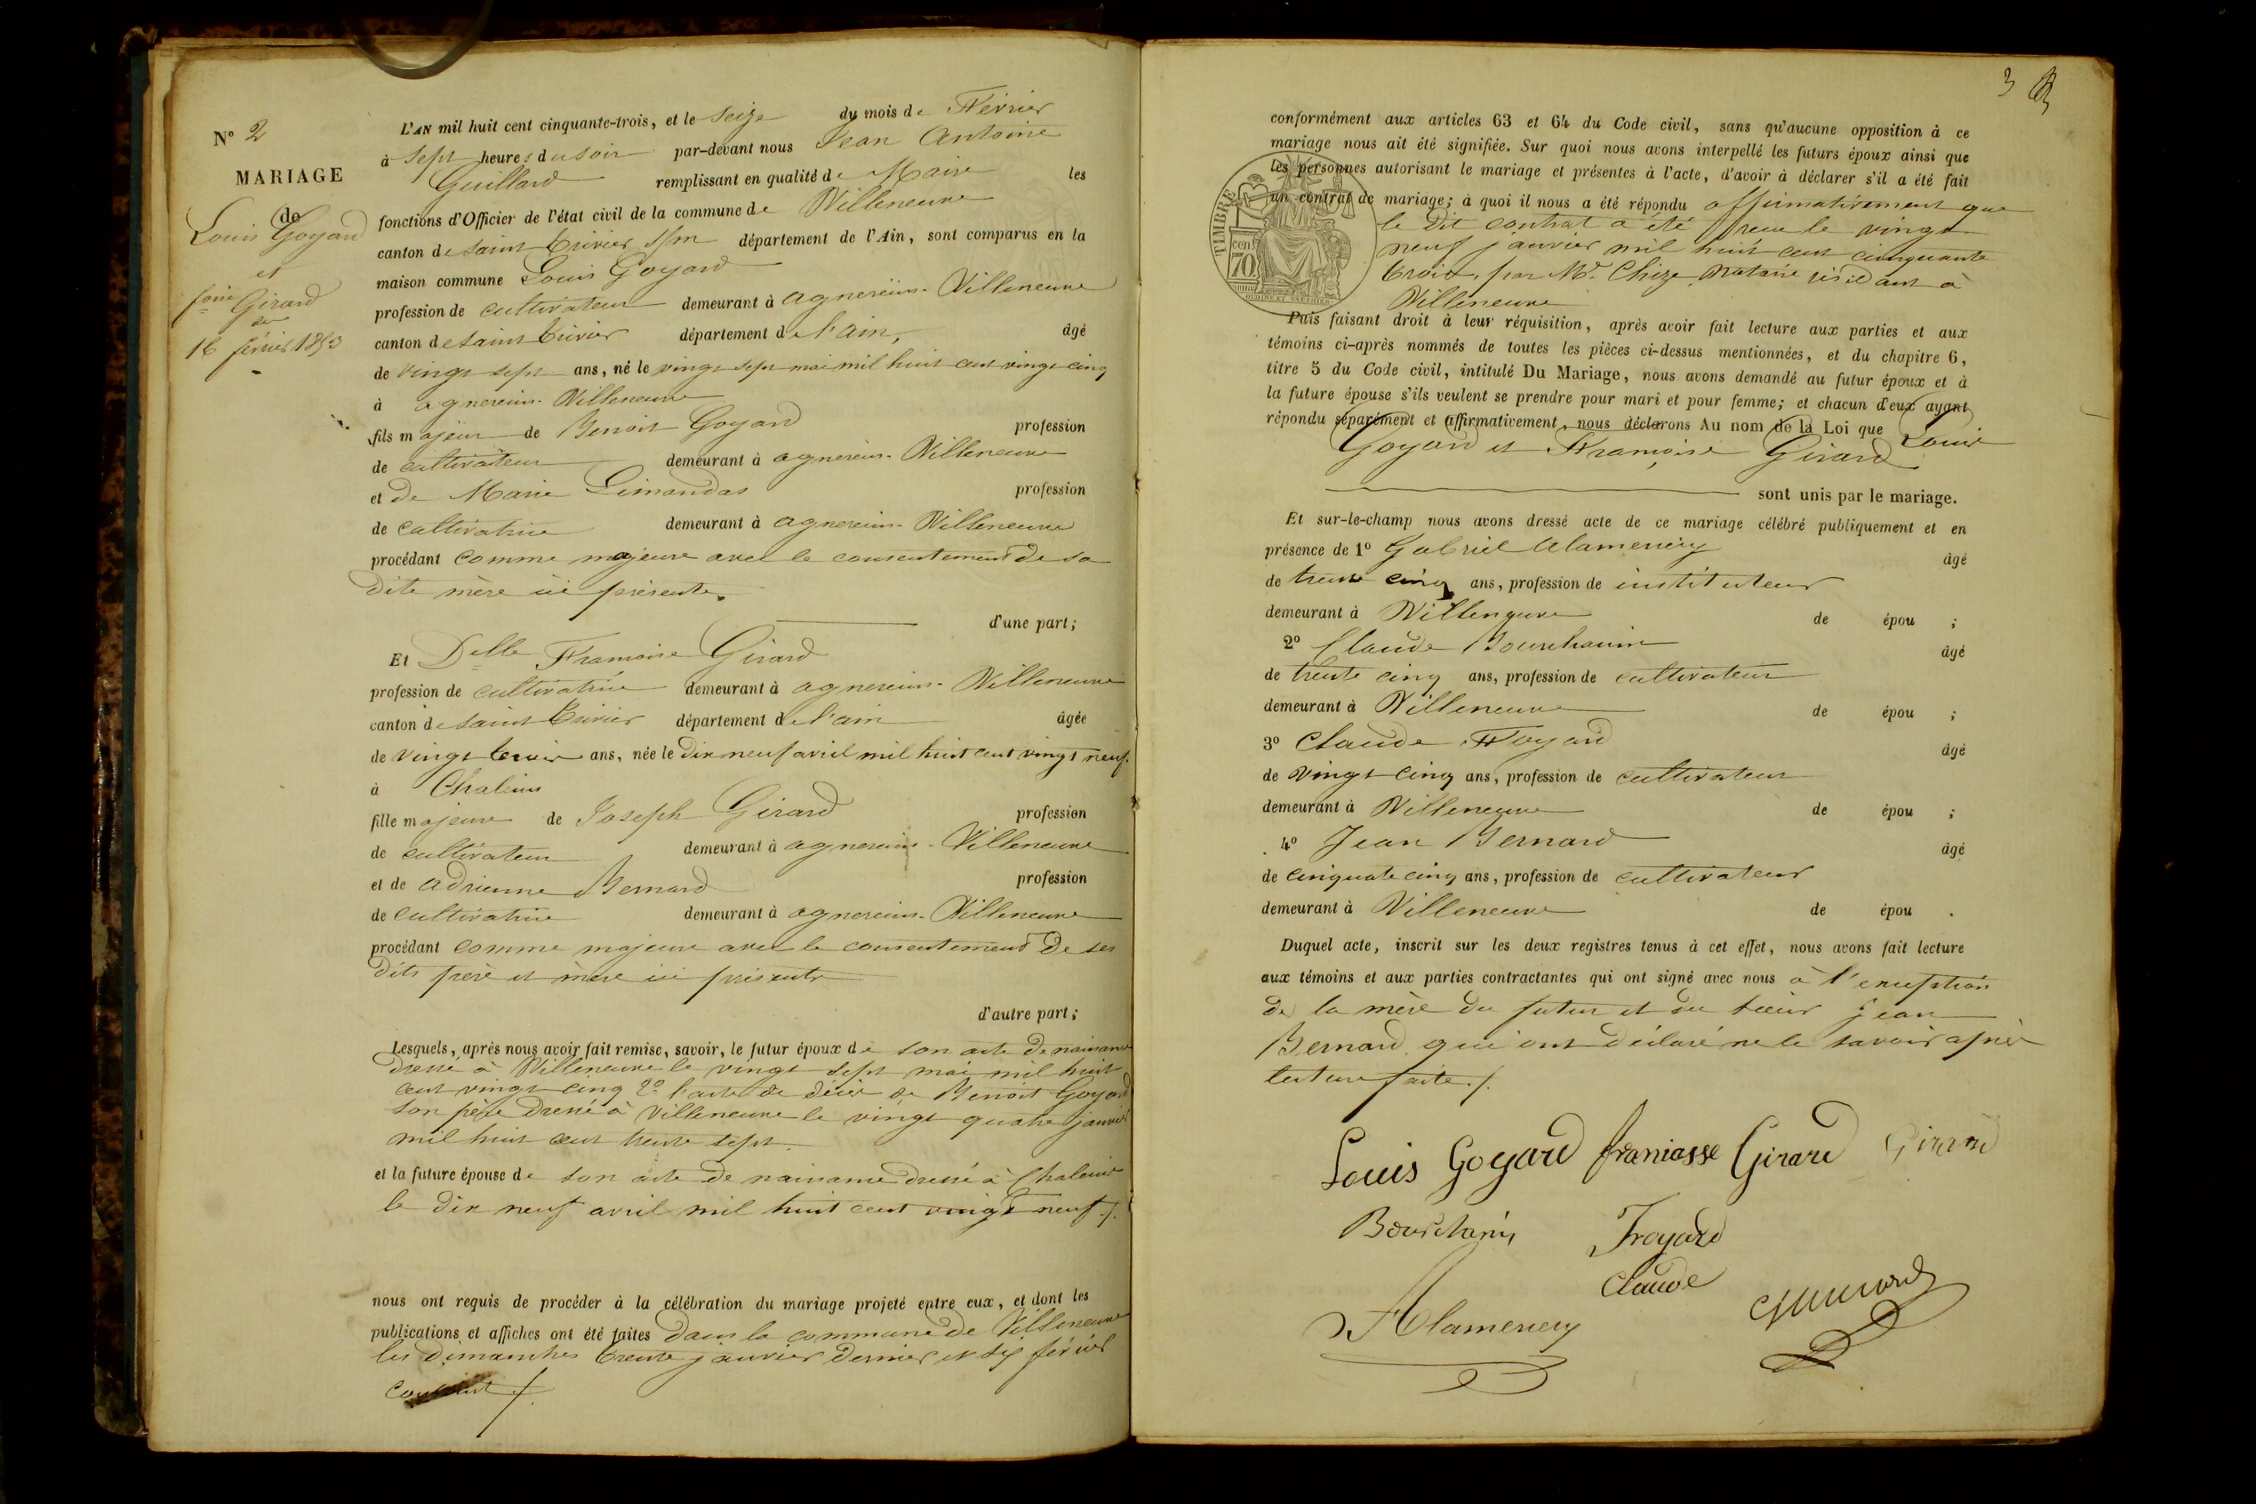 N° 2
MARIAGE
de
Louis Goyard
et
fçoise Girard
du
16 février 1853
L'AN mil huit cent cinquante-trois, et le seize du mois de Février
à sept heures du soir par-devant nous Jean Antoine
Guillard remplissant en qualité de Maire les
fonctions d'Officier de l'état civil de la commune de Villeneuve
canton de saint Trivier s/m département de l'Ain, sont comparus en la
maison commune Louis Goyard
profession de cultivateur demeurant à agnereins-Villeneuve
canton de saint Trivier département de l'ain, âgé
de vingt sept ans, né le vingt sept mai mil huit cent vingt cinq
à agnereins-Villeneuve
fils majeur de Benoit Goyard profession
de cultivateur demeurant à agnereins-Villeneuve
et de Marie Limandas profession
de cultivatrice demeurant à agnereins-Villeneuve
procédant comme majeure avec le consentement de sa
dite mère ici présente.
d'une part;
Et Delle Francoise Girard
profession de cultivatrice demeurant à agnereins-Villeneuve
canton de saint Trivier département de l'ain âgée
de vingt trois ans, née le dix neuf avril mil huit cent vingt neuf.
à Chaleins
fille majeure de Joseph Girard profession
de cultivateur demeurant à agnereins-Villeneuve
et de adrienne Bernard profession
de cultivatrice demeurant à agnereins-Villeneuve
procédant comme majeure avec le consentement de ses
dits père et mère ici présents
d'autre part;
Lesquels, après nous avoir fait remise, savoir, le futur époux de son acte de naissance
dressé à Villeneuve le vingt sept mai mil huit
cent vingt cinq 2° l'acte de décès de Benoit Goyard
son père dressé à Villeneuve le vingt quatre janvier
mil huit cent trente sept.
et la future épouse de son acte de naissance dressé à Chaleins
le dix neuf avril mil huit cent vingt neuf ./.
nous ont requis de procéder à la célébration du mariage projeté entre eux, et dont les
publications et affiches ont été faites dans la commune de Villeneuve
les dimanches trente janvier dernier et six février
courant ./.
3
conformément aux articles 63 et 64 du Code civil, sans qu'aucune opposition à ce
mariage nous ait été signifiée. Sur quoi nous avons interpellé les futurs époux ainsi que
les personnes autorisant le mariage et présentes à l'acte, d'avoir à déclarer s'il a été fait
un contrat de mariage; à quoi il nous a été répondu affirmativement que
TIMBRE
cent
70
le dit contrat a été reçu le vingt
neuf janvier mil huit cent cinquante
trois, par Me. Chize notaire résidant à
Villeneuve
Puis faisant droit à leur réquisition, après avoir fait lecture aux parties et aux
témoins ci-après nommés de toutes les pièces ci-dessus mentionnées, et du chapitre 6,
titre 5 du Code civil, intitulé Du Mariage, nous avons demandé au futur époux et à
la future épouse s'ils veulent se prendre pour mari et pour femme; et chacun d'eux ayant
répondu séparément et affirmativement, nous déclarons Au nom de la Loi que Louis
Goyard et Françoise Girard
sont unis par le mariage.
Et sur-le-champ nous avons dressé acte de ce mariage célébré publiquement et en
présence de 1° Gabriel Alamercery âgé
de trente cinq ans, profession de instituteur
demeurant à Villeneuve de épou ;
2° Claude Bourchanin âgé
de trente cinq ans, profession de cultivateur
demeurant à Villeneuve de épou ;
3° Claude Froyard âgé
de vingt cinq ans, profession de cultivateur
demeurant à Villeneuve de épou ;
4° Jean Bernard âgé
de cinquate cinq ans, profession de cultivateur
demeurant à Villeneuve de épou .
Duquel acte, inscrit sur les deux registres tenus à cet effet, nous avons fait lecture
aux témoins et aux parties contractantes qui ont signé avec nous à l'exception
de la mère du futur et du sieur jean
Bernard qui ont déclaré ne le savoir après
lecture faite ./.
Louis Goyard franiasse Girard Girard
Bourchanin Froyard
Claude
Alamercery Guillard